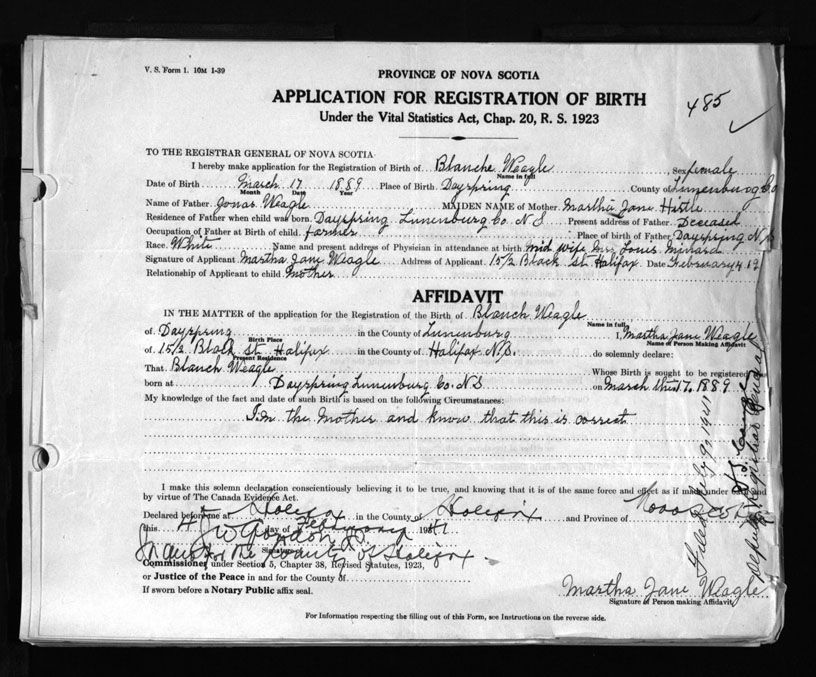 V. S. Form 1. 10M 1-39
PROVINCE OF NOVA SCOTIA
APPLICATION FOR REGISTRATION OF BIRTH
485
Under the Vital Statistics Act, Chap. 20, R. S. 1923
TO THE REGISTRAR GENERAL OF NOVA SCOTIA
I hereby make application for the Registration of Birth of Blanche Weagle Sex female
Name in full
Date of Birth March 17 1889 Place of Birth Dayspring County of Lunenburg Co
Month Date Year
Name of Father Jonas Weagle MAIDEN NAME of Mother Martha Jane Hirtle
Residence of Father when child was born Dayspring Lunenburg Co. N S Present address of Father Deceased
Occupation of Father at Birth of child farmer Place of birth of Father Dayspring N.S
Race White Name and present address of Physician in attendance at birth mid wife Mrs Louis
Signature of Applicant Martha Jane Weagle Address of Applicant 15 1/2 Black St Halifax Date February 4
Relationship of Applicant to child Mother
AFFIDAVIT
IN THE MATTER of the application for the Registration of the Birth of Blanch Weagle
Name in full
of Dayspring in the County of Lunenburg I, Martha Jane Weagle
Birth Place Name of Person Making Affidavit
of 15 1/2 Black St Halifax in the County of Halifax N.S. do solemnly declare:
Present Residence
That Blanch Weagle Whose Birth is sought to be registered
born at Dayspring Lunenburg Co. N S on March the 17. 1889
My knowledge of the fact and date of such Birth is based on the following Circumstances:
I'm the Mother and know that this is correct
I make this solemn declaration conscientiously believing it to be true, and knowing that it is of the same force and effect as if made under oath and
by virtue of The Canada Evidence Act.
Declared before me at Halifax in the County of Halifax and Province of Nova Scotia
this 4 day of February 1941
J W Gordon
Signature
In and for the County of Halifax.
Commissioner under Section 5, Chapter 38, Revised Statutes, 1923,
or Justice of the Peace in and for the County of
If sworn before a Notary Public affix seal.
Martha Jane Weagle
Signature of Person making Affidavit
For Information respecting the filling out of this Form, see Instructions on the reverse side.
Filed July 9, 1941
Deputy Registrar General